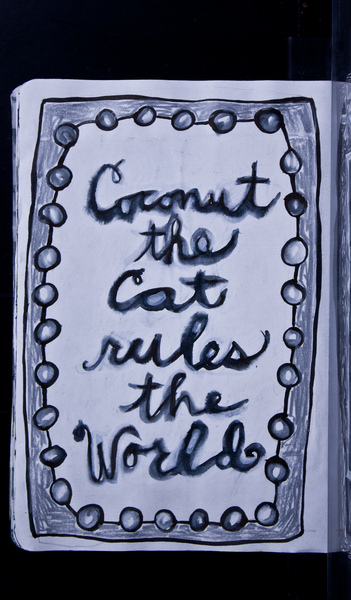 Coconut
the
Cat
rules
the
World